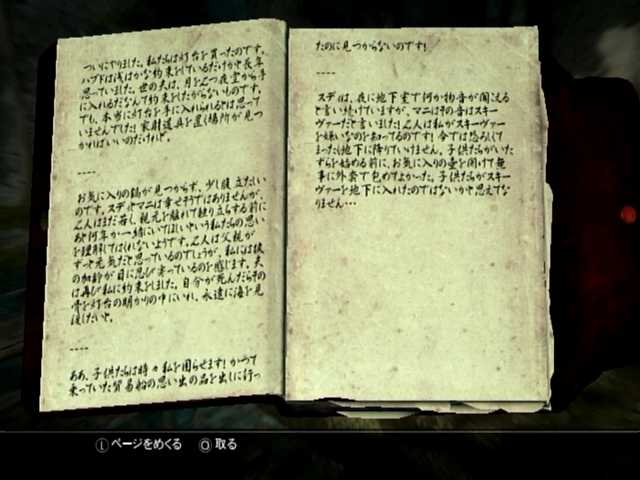 ついにやりました。私たちは灯台を買ったのです。
ハブドは浅はかな約束をしているだけかと長年
思っていました。世の夫は、月を2つ夜空から手
に入れるだなんて約束をしたがらないものです。
でも、本当に灯台を手に入れられるとは思って
いませんでした！家財道具を置く場所が見つ
かればいいのだけれど。
----
お気に入りの鍋が見つからず、少し腹立たしい
のです。スディやマニは幸せそうではありませんが、
2人はまだ若く、親元を離れて独り立ちする前に
あと何年か一緒にいてほしいという私たちの思い
を理解してはくれないようです。2人は父親が
ずっと元気だと思っているのでしょうが、私には彼
の加齢が目に忍び寄っているのを感じます。夫
は再び私に約束をしました。自分が死んだらその
骨を灯台の明かりの中にいれ、永遠に海を見
渡したいと。
----
ああ、子供たちは時々私を困らせます！かつて
乗っていた貿易船の思い出の品を出しに行っ
たのに見つからないのです！
----
スディは、夜に地下室で何か物音が聞こえる
と言い続けていますが、マニはその音はスキー
ヴァーだと言いました！2人は私がスキーヴァー
を嫌いなのを知ってるのです！今では恐ろしくて
まったく地下に降りていけません。子供たちがいた
ずらを始める前に、お気に入りの壷を開けて無
事に外套で包めてよかった。子供たちがスキー
ヴァーを地下に入れたのではないかと思えてな
りません…
Ⓛ ページをめくる ◯ 取る